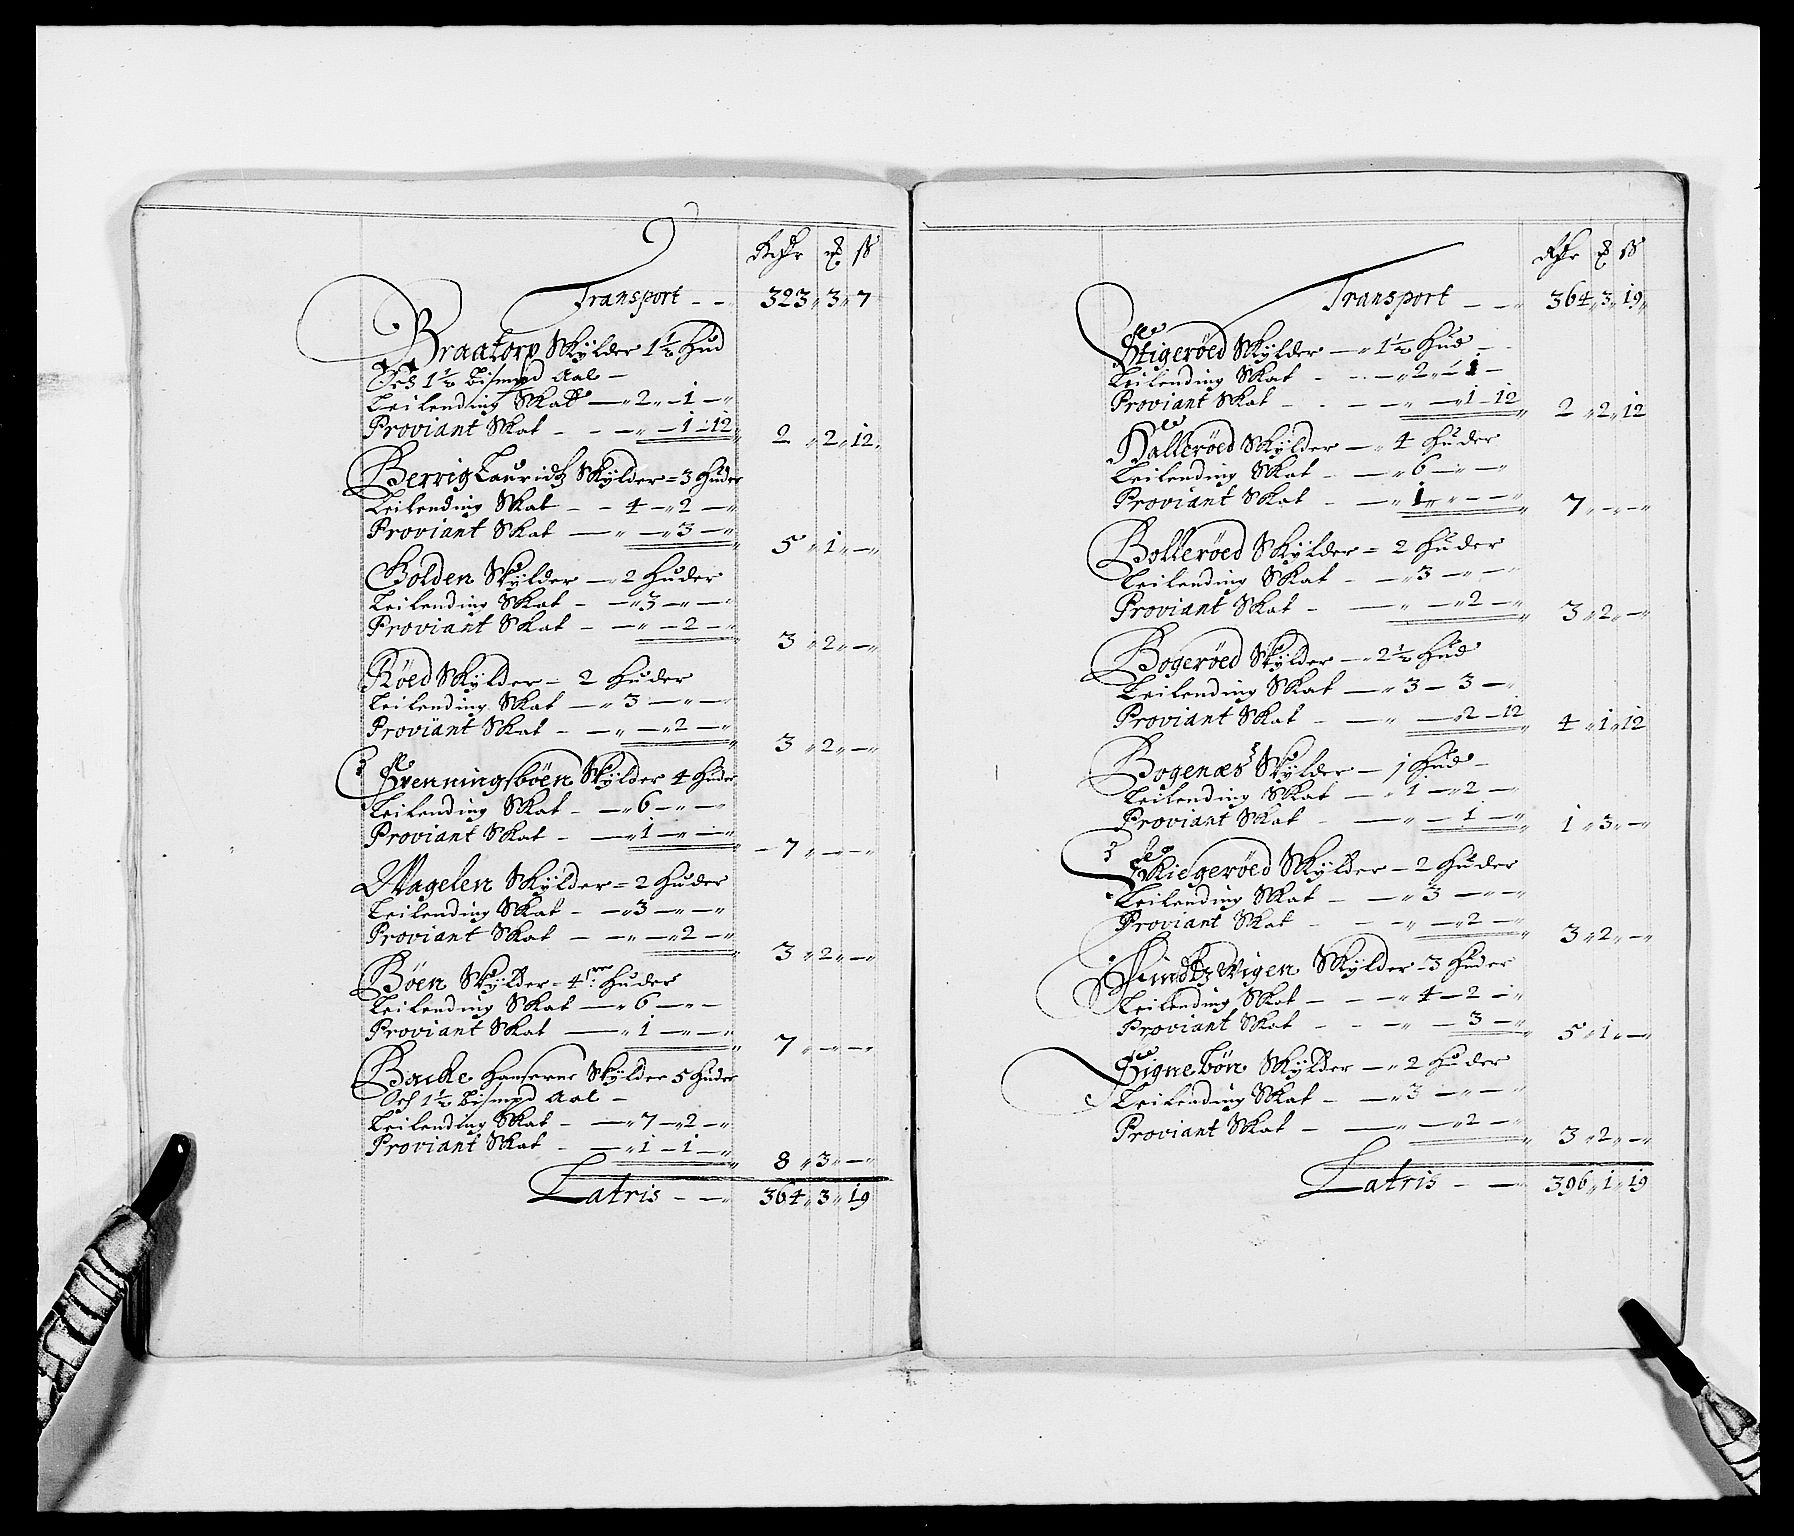 Rdlr ort ß
Transport - - 323 " 3 " 7
Braatorp Skylder 1½ Hud
Och 1½ bismpd Aal -
Leilending Skat - 2 - 1 -
Proviant Skat - - - 1 - 12 2 " 2 " 12
Berrig Lauridtz Skylder = 3 huder
Leilending Skat - - 4 - 2 -
Proviant Skat - " - 3 - 5 " 1 " -
Bolden Skylder - 2 huder
Leilending Skat - - 3 - " -
Proviant Skat - - " - 2 - 3 " 2 " -
Röed Skylder - 2 huder
Leilending Skat - " 3 - " -
Proviant Skat - - " - 2 - 3 " 2 " -
Henningsböen Skylder 4 huder
Leilending Skat - - 6 - " -
Proviant Skat - - 1 - " - - 7 " - " -
Wagelen Skylder = 2 huder
Leilending Skat - - 3 - " -
Proviant Skat - - " - 2 - 3 " 2 " -
Böen Skylder - 4re huder
Leilending Skat - 6 - " -
Proviant Skat - 1 - " - 7 " - " -
Backe Hanserne Skylder 5 huder
Och 1½ bismpd Aal -
Leilending Skat - - 7 - 2 -
Proviant Skat - - 1 - 1 - 8 " 3 " -
Latris - - 364 " 3 " 19
Rdlr ort ß
Transport - - 364 " 3 " 19
Stigeröed Skylder - 1½ Hud -
Leilending Skat - - - 2 - 1 -
Proviant Skat - - - " - 1 - 12 2 " 2 " 12
Halleröed Skylder - 4 huder
Leilending Skat - - 6 - " -
Proviant Skat - - 1 " - - 7 " - " -
Bolleröed Skylder = 2 huder
Leilending Skat - - 3 - " -
Proviant Skat - - " - 2 - 3 " 2 " -
Bogeröed Skylder - 2½ Hud
Leilending Skat - " 3 - 3 -
Proviant Skat - - " - 2 - 12 4 " 1 " 12
Bogenæs Skylder - 1 Hud -
Leilending Skat - " 1 - 2 -
Proviant Skat - - " - 1 - 1 " 3 " -
Skiegeröed Skylder - 2 huder
Leilending Skat - - 3 - " -
Proviant Skat - - " - 2 - 3 " 2 " -
Sundtz Wigen Skylder - 3 huder
Leilending Skat - - - 4 - 2 -
Proviant Skat - - - " - 3 - 5 " 1 " -
Signebön Skylder - 2 huder
Leilending Skat - - 3 - " -
Proviant Skat - - " - 2 - 3 " 2 " -
Latris - - 396 " 1 " 19